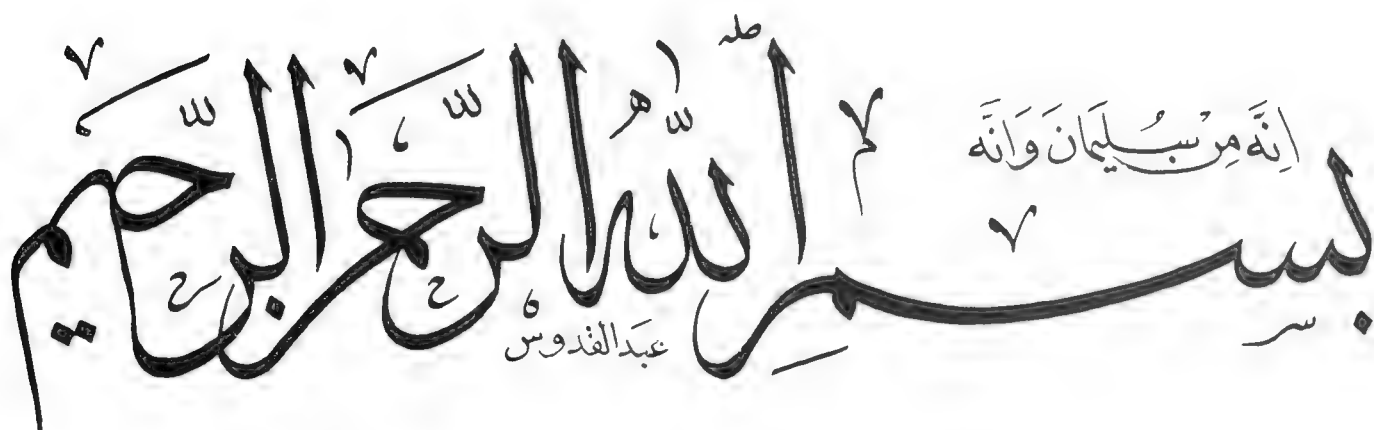 اِنَّهٗ مِنْ سُلَیْمَانَ وَاِنَّهٗ
بِسْمِ اللّٰهِ الرَّحْمٰنِ الرَّحِیْمِ
عبدالقدوس